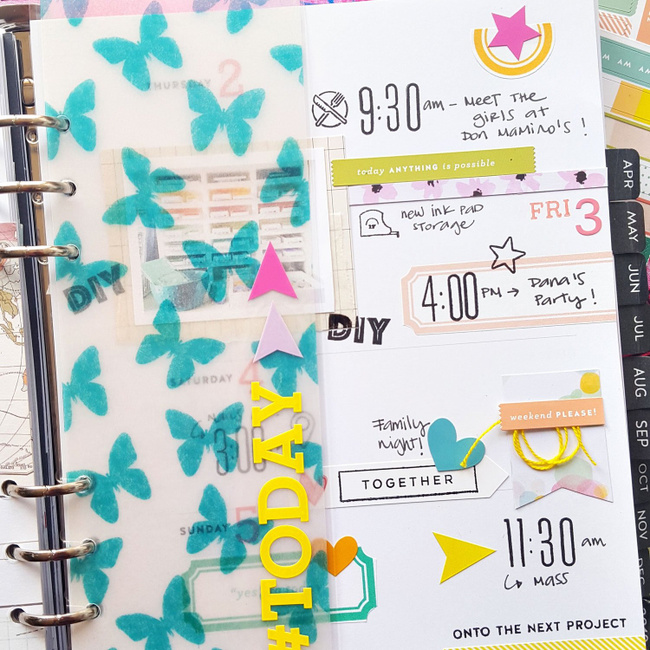 THURSDAY 2
9:30 am - MEET THE
GIRLS AT
DON MAMINO'S!
today ANYTHING is possible
new ink pad
storage
FRI 3
DIY
4:00 PM → Dana's
Party!
DIY
SATURDAY 4
3:00
Family
night!
weekend PLEASE!
TOGETHER
#TODAY
SUNDAY 5
11:30 am
↳ MASS
ONTO THE NEXT PROJECT
APR
MAY
JUN
JUL
AUG
SEP
OCT
NOV
DEC
AM AM